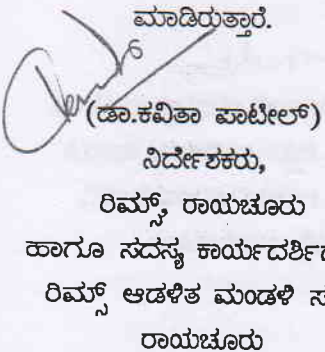 ಮಾಡಿರುತ್ತಾರೆ.
(ಡಾ.ಕವಿತಾ ಪಾಟೀಲ್)
ನಿರ್ದೇಶಕರು,
ರಿಮ್ಸ್, ರಾಯಚೂರು
ಹಾಗೂ ಸದಸ್ಯ ಕಾರ್ಯದರ್ಶಿ
ರಿಮ್ಸ್ ಆಡಳಿತ ಮಂಡಳಿ ಸ
ರಾಯಚೂರು